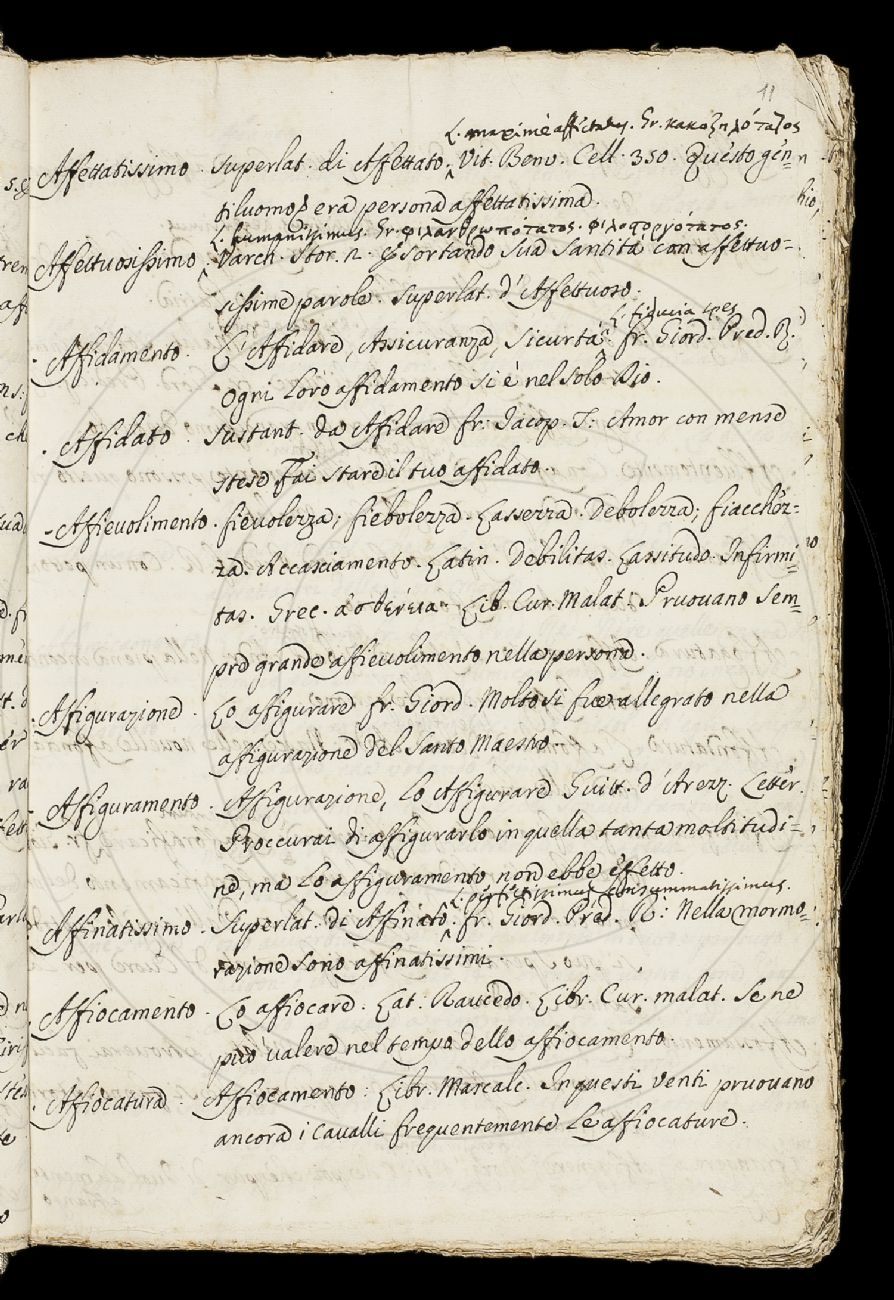 11
L. maximè affectatus. Gr. κακοζηλότατος
Affettatissimo. Superlat. di Affettato, Vit. Benv. Cell. 350. Questo gen=
tiluomo era persona affettatissima.
L. humanissimus. Gr. φιλανθρωπότατος. φιλοστοργότατος.
Affettuosissimo. Varch. Stor. 12. Esortando Sua Santità con affettuo=
sissime parole. Superlat. d'Affettuoso.
L. fiducia spes
Affidamento. L'Affidare, Assicuranza, Sicurtà. fr. Giord. Pred. R.
Ogni loro affidamento si è nel solo Dio.
Affidato. Sustant. da Affidare fr. Iacop. T: Amor con mense
stese Fai stare il tuo affidato.
Affievolimento. fievolezza; fiebolezza. Lassezza. Debolezza; fiacchez=
za. Accasciamento. Latin. Debilitas. Lassitudo. Infirmi=
tas. Grec. ἀσθένεια. Lib. Cur. Malat: Pruovano sem=
pre grande affievolimento nella persona.
Affigurazione. Lo affigurare fr. Giord. Molto si fue allegrato nella
affigurazione del Santo Maestro.
Affiguramento. Affigurazione, lo Affigurare Guitt. d'Arezz. Letter.
Proccurai di affigurarlo in quella tanta moltitudi=
ne, ma lo affiguramento non ebbe effetto.
L. perfectissimus consummatissimus.
Affinatissimo. Superlat. di Affinato. fr. Giord. Pred. R: Nella mormo=
razione sono affinatissimi.
Affiocamento. Lo affiocare. Lat. Raucedo. Libr. Cur. malat. Se ne
può valere nel tempo dello affiocamento.
Affiocatura. Affiocamento: Libr. Mascalc. In questi venti pruovano
ancora i cavalli frequentemente le affiocature.